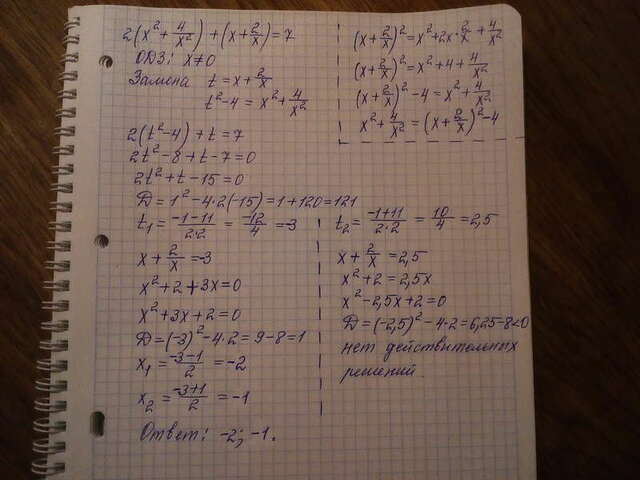 2(x² + 4/x²) + (x + 2/x) = 7
ОДЗ: x ≠ 0
Замена t = x + 2/x
t² - 4 = x² + 4/x²
(x + 2/x)² = x² + 2x · 2/x + 4/x²
(x + 2/x)² = x² + 4 + 4/x²
(x + 2/x)² - 4 = x² + 4/x²
x² + 4/x² = (x + 2/x)² - 4
2(t² - 4) + t = 7
2t² - 8 + t - 7 = 0
2t² + t - 15 = 0
D = 1² - 4·2(-15) = 1 + 120 = 121
t₁ = (-1-11)/(2·2) = -12/4 = -3
x + 2/x = -3
x² + 2 + 3x = 0
x² + 3x + 2 = 0
D = (-3)² - 4·2 = 9 - 8 = 1
x₁ = (-3-1)/2 = -2
x₂ = (-3+1)/2 = -1
Ответ: -2; -1.
t₂ = (-1+11)/(2·2) = 10/4 = 2,5
x + 2/x = 2,5
x² + 2 = 2,5x
x² - 2,5x + 2 = 0
D = (-2,5)² - 4·2 = 6,25 - 8 < 0
нет действительных
решений.